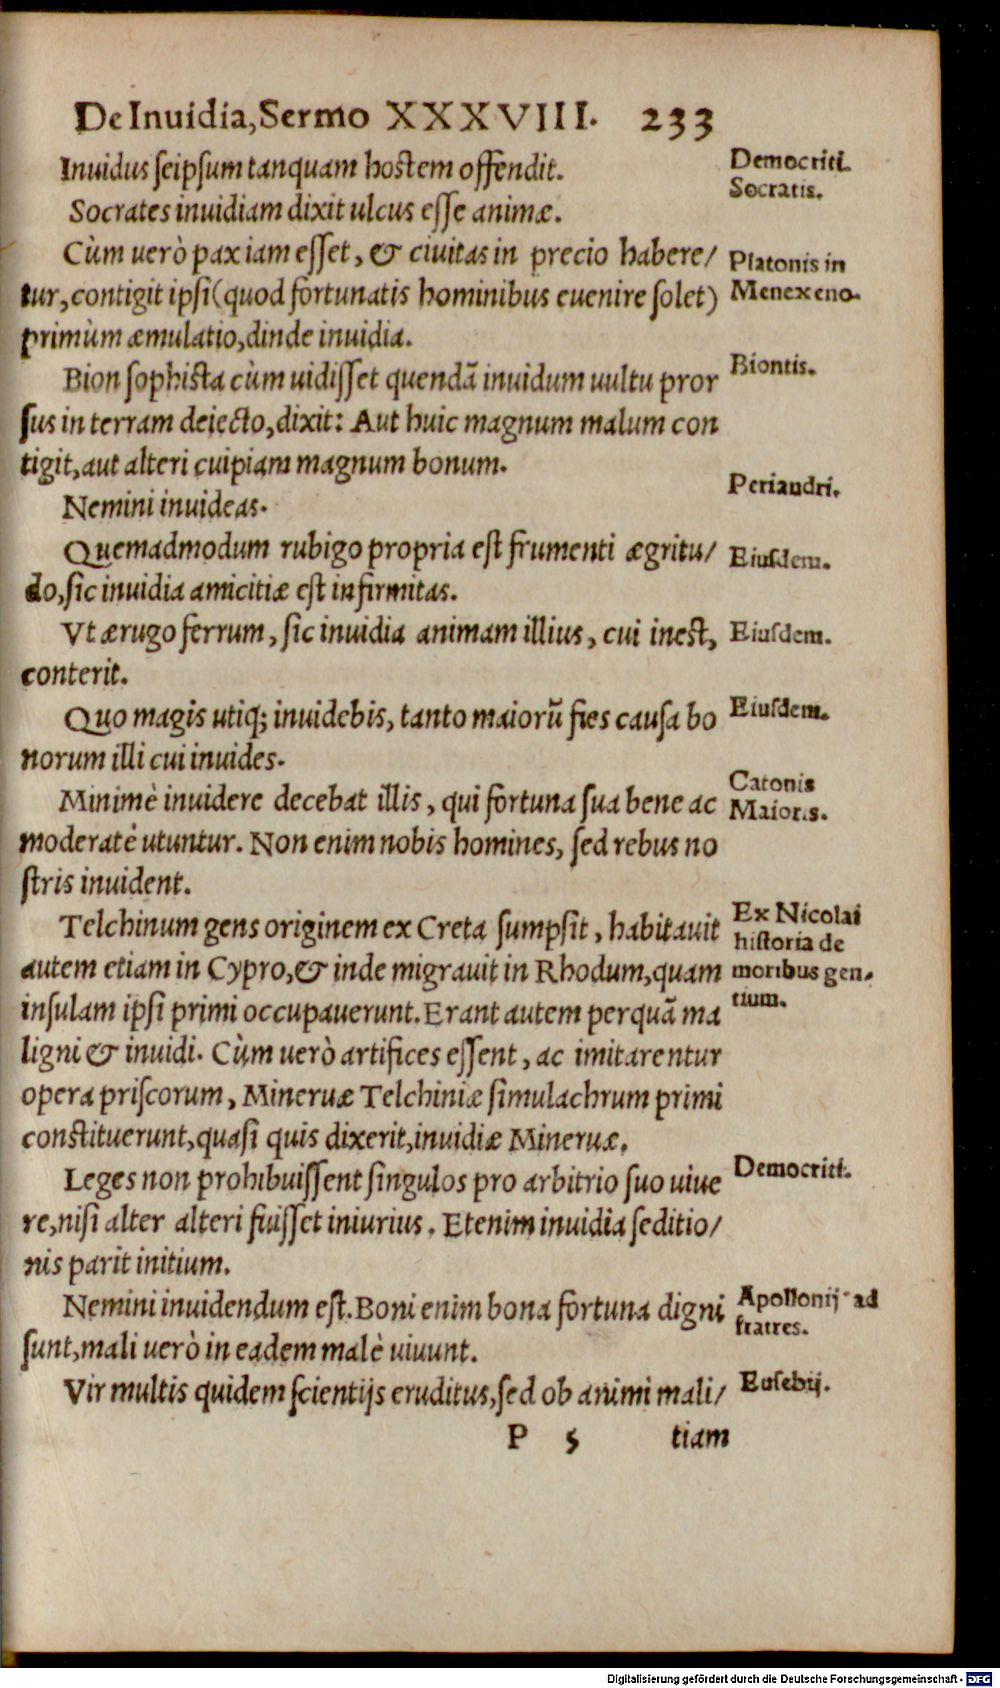 De Inuidia, Sermo XXXVIII. 233
Inuidus ſeipſum tanquam hoſtem offendit.
Democriti.
Socrates inuidiam dixit ulcus eſſe animæ.
Socratis.
Cùm uerò pax iam eſſet, & ciuitas in precio habere/
Platonis in
tur, contigit ipſi (quod fortunatis hominibus euenire ſolet)
Menexeno.
primùm æmulatio, dinde inuidia.
Bion ſophiſta cùm uidiſſet quendã inuidum uultu pror
Biontis.
ſus in terram deiecto, dixit: Aut huic magnum malum con
tigit, aut alteri cuipiam magnum bonum.
Nemini inuideas.
Periandri.
Quemadmodum rubigo propria eſt frumenti ægritu/
Eiuſdem.
do, ſic inuidia amicitiæ eſt infirmitas.
Vt ærugo ferrum, ſic inuidia animam illius, cui ineſt,
Eiuſdem.
conterit.
Quo magis utiq; inuidebis, tanto maiorũ fies cauſa bo
Eiuſdem.
norum illi cui inuides.
Minimè inuidere decebat illis, qui fortuna ſua bene ac
Catonis
moderatè utuntur. Non enim nobis homines, ſed rebus no
Maioris.
ſtris inuident.
Telchinum gens originem ex Creta ſumpſit, habitauit
Ex Nicolai
autem etiam in Cypro, & inde migrauit in Rhodum, quam
hiſtoria de
moribus gen.
inſulam ipſi primi occupauerunt. Erant autem perquã ma
tium.
ligni & inuidi. Cùm uerò artifices eſſent, ac imitarentur
opera priſcorum, Mineruæ Telchiniæ ſimulachrum primi
conſtituerunt, quaſi quis dixerit, inuidiæ Mineruæ.
Leges non prohibuiſſent ſingulos pro arbitrio ſuo uiue
Democriti.
re, niſi alter alteri fuiſſet iniurius. Etenim inuidia ſeditio/
nis parit initium.
Nemini inuidendum eſt. Boni enim bona fortuna digni
Apollonij ad
ſunt, mali uerò in eadem malè uiuunt.
fratres.
Vir multis quidem ſcientijs eruditus, ſed ob animi mali/
Euſebij.
P 5 tiam
Digitalisierung gefördert durch die Deutsche Forschungsgemeinschaft - DFG